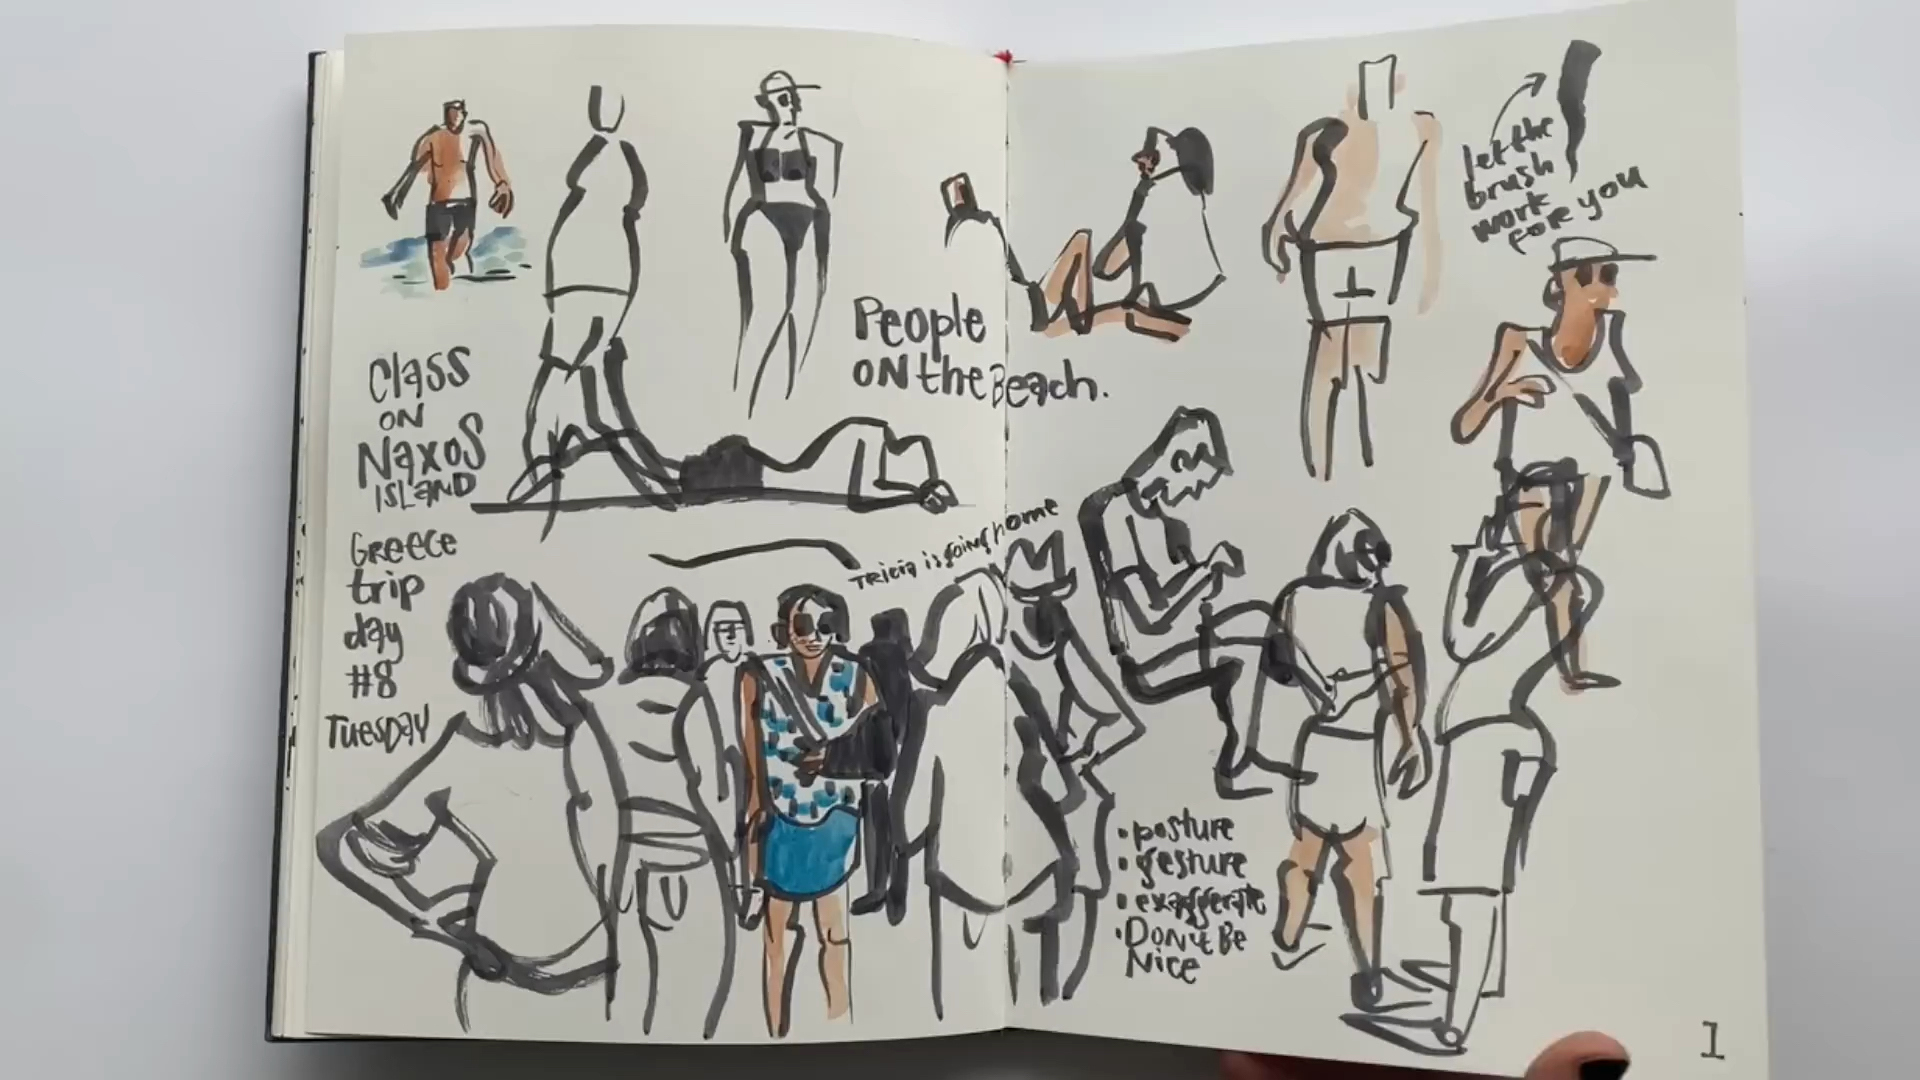 Class
ON
NaxoS
ISLanD
Greece
trip
day
#8
TuesDay
People
ON the Beach.
Tricia is going home
let the
brush
work
for you
• posture
• gesture
• exaggerate
• Don't Be
Nice
1